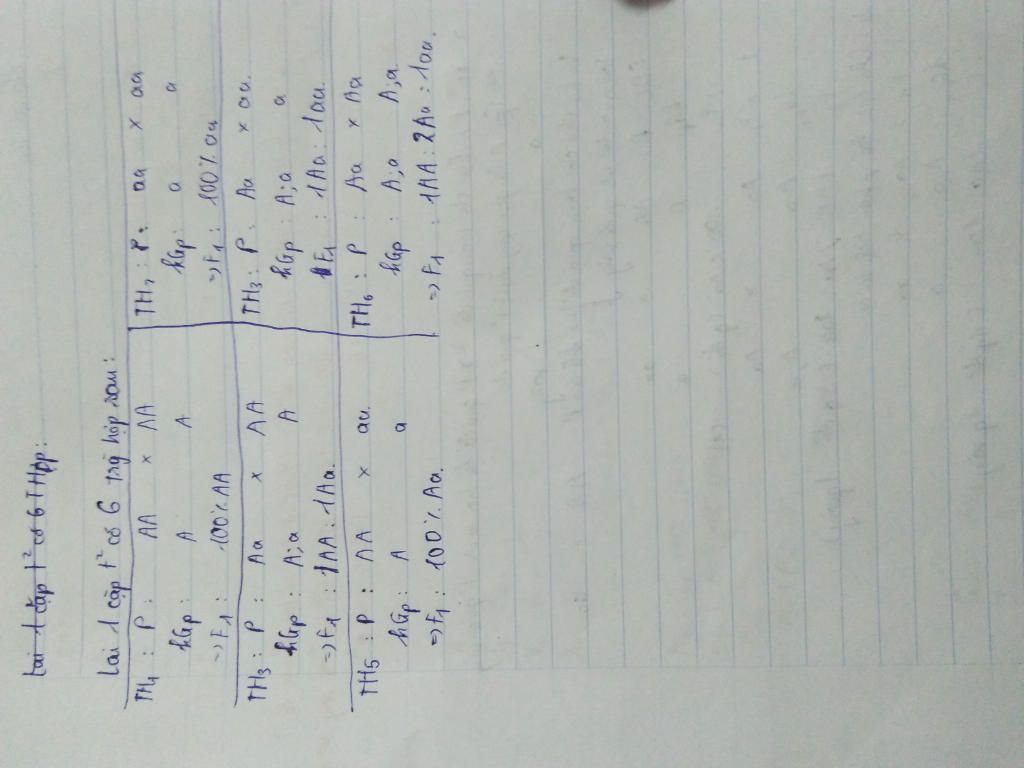 Lai 1 cặp t² có 6 THợp:
Lai 1 cặp t² có 6 trg hợp sau:
TH1 : P : AA x AA
kGp : A A
=> F1 : 100% AA
TH2 : P : aa x aa
kGp : a a
=> F1 : 100% aa
TH3 : P : Aa x AA
kGp : A;a A
=> F1 : 1AA : 1Aa.
TH3 : P : Aa x aa.
kGp : A;a a
F1 : 1Aa : 1aa.
TH5 : P : AA x aa.
kGp : A a
=> F1 : 100% Aa.
TH6 : P : Aa x Aa
kGp : A;a A;a
=> F1 : 1AA : 2Aa : 1aa.